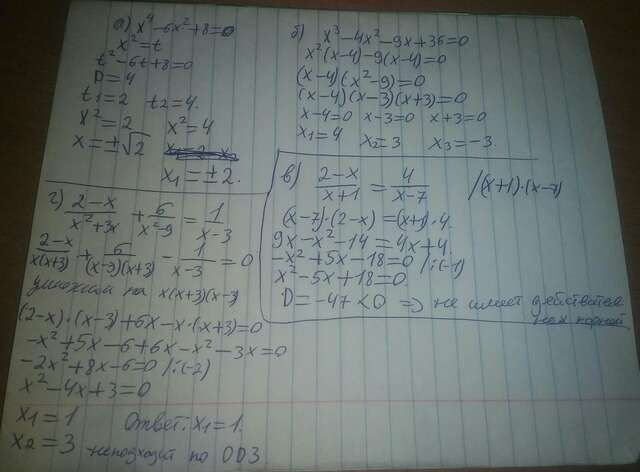 а) x⁴-6x²+8=0
x²=t
t²-6t+8=0
D=4
t1=2 t2=4.
x²=2 x²=4
x=±√2
x1=±2.
б) x³-4x²-9x+36=0
x²(x-4)-9(x-4)=0
(x-4)(x²-9)=0
(x-4)(x-3)(x+3)=0
x-4=0 x-3=0 x+3=0
x1=4 x2=3 x3=-3.
в) (2-x)/(x+1) = 4/(x-7) /(x+1)·(x-7)
(x-7)·(2-x)=(x+1)·4.
9x-x²-14=4x+4.
-x²+5x-18=0 /:(-1)
x²-5x+18=0.
D=-47<0 => не имеет действител
ьных корней
г) (2-x)/(x²+3x) + 6/(x²-9) = 1/(x-3)
(2-x)/(x(x+3)) + 6/((x-3)(x+3)) - 1/(x-3) = 0
умножим на x(x+3)(x-3)
(2-x)·(x-3)+6x-x·(x+3)=0
-x²+5x-6+6x-x²-3x=0
-2x²+8x-6=0 /:(-2)
x²-4x+3=0
x1=1 Ответ: x1=1.
x2=3 неподходит по ОДЗ.